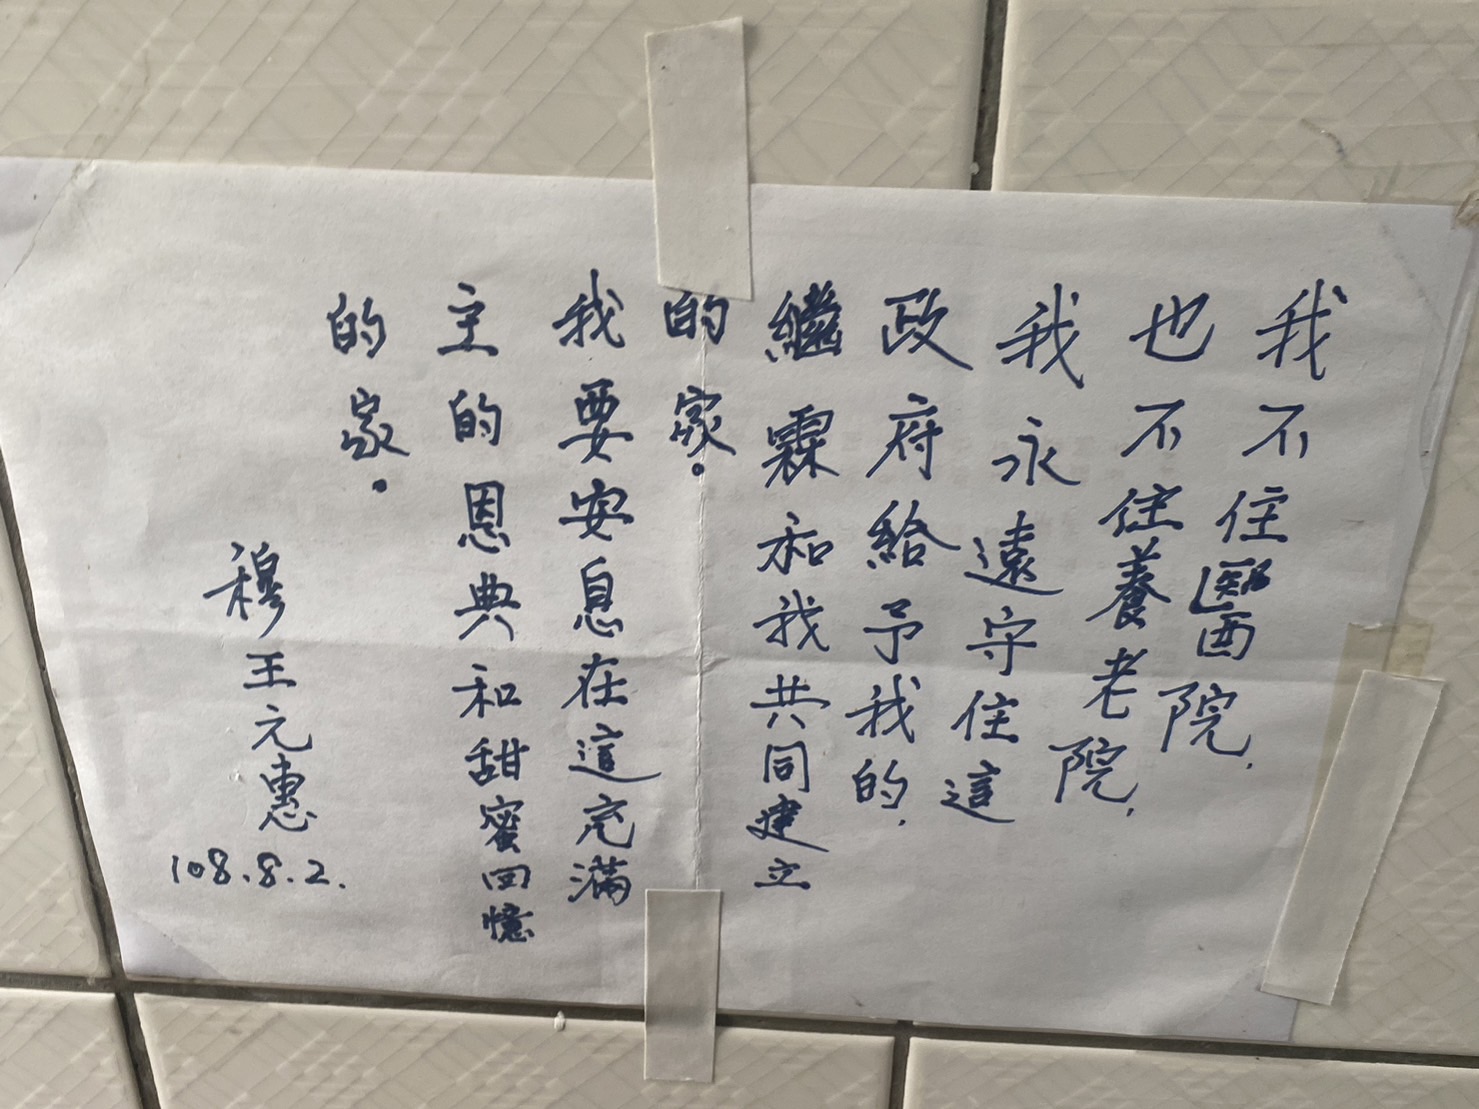 我不住醫院,
也不住養老院,
我永遠守住這
政府給予我的,
繼霖和我共同建立
的家。
我要安息在這充滿
主的恩典和甜蜜回憶
的家。
穆王元惠
108.8.2.